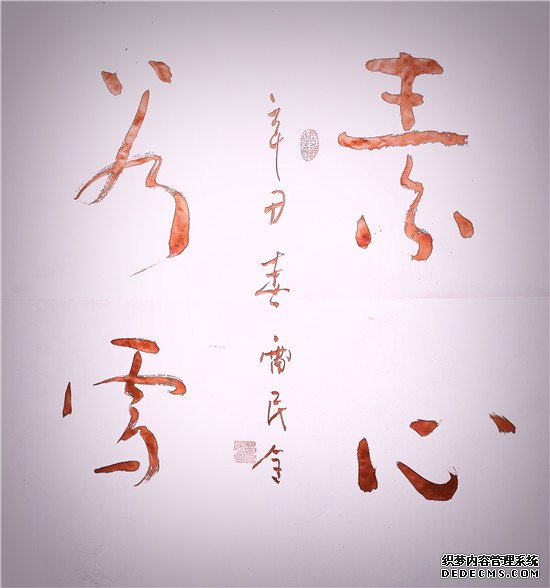 素心
若雪
辛丑春雷民全
织梦内容管理系统
DEDECMS.COM